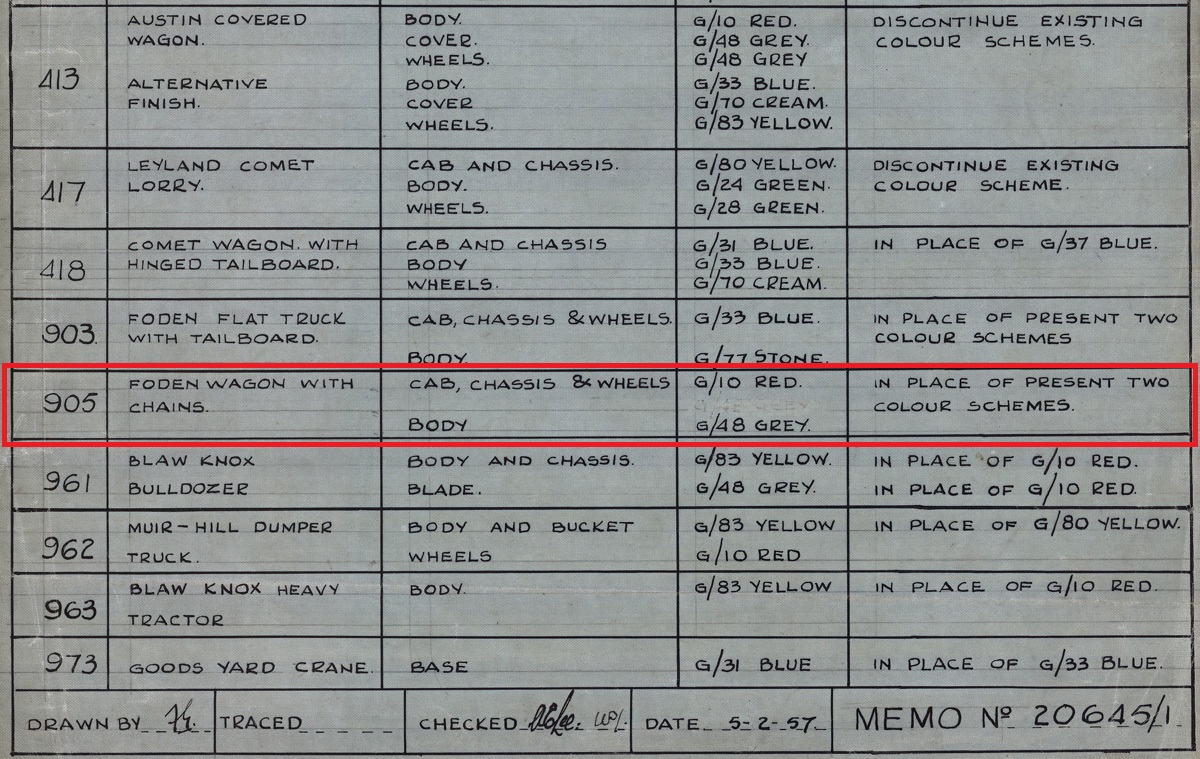 413 AUSTIN COVERED BODY. G/10 RED. DISCONTINUE EXISTING
WAGON. COVER. G/48 GREY. COLOUR SCHEMES.
WHEELS. G/48 GREY
ALTERNATIVE BODY. G/33 BLUE.
FINISH. COVER G/70 CREAM.
WHEELS. G/83 YELLOW.
417 LEYLAND COMET CAB AND CHASSIS. G/80 YELLOW. DISCONTINUE EXISTING
LORRY. BODY. G/24 GREEN. COLOUR SCHEME.
WHEELS. G/28 GREEN.
418 COMET WAGON. WITH CAB AND CHASSIS G/31 BLUE. IN PLACE OF G/37 BLUE.
HINGED TAILBOARD. BODY G/33 BLUE.
WHEELS. G/70 CREAM.
903. FODEN FLAT TRUCK CAB, CHASSIS & WHEELS. G/33 BLUE. IN PLACE OF PRESENT TWO
WITH TAILBOARD. COLOUR SCHEMES
BODY. G/77 STONE.
905 FODEN WAGON WITH CAB, CHASSIS & WHEELS G/10 RED. IN PLACE OF PRESENT TWO
CHAINS. COLOUR SCHEMES.
BODY G/48 GREY.
961 BLAW KNOX BODY AND CHASSIS. G/83 YELLOW. IN PLACE OF G/10 RED.
BULLDOZER BLADE. G/48 GREY. IN PLACE OF G/10 RED.
962 MUIR-HILL DUMPER BODY AND BUCKET G/83 YELLOW IN PLACE OF G/80 YELLOW.
TRUCK. WHEELS G/10 RED
963 BLAW KNOX HEAVY BODY. G/83 YELLOW IN PLACE OF G/10 RED.
TRACTOR
973 GOODS YARD CRANE. BASE G/31 BLUE IN PLACE OF G/33 BLUE.
DRAWN BY TRACED CHECKED DATE 5-2-57. MEMO Nº 20645/1.